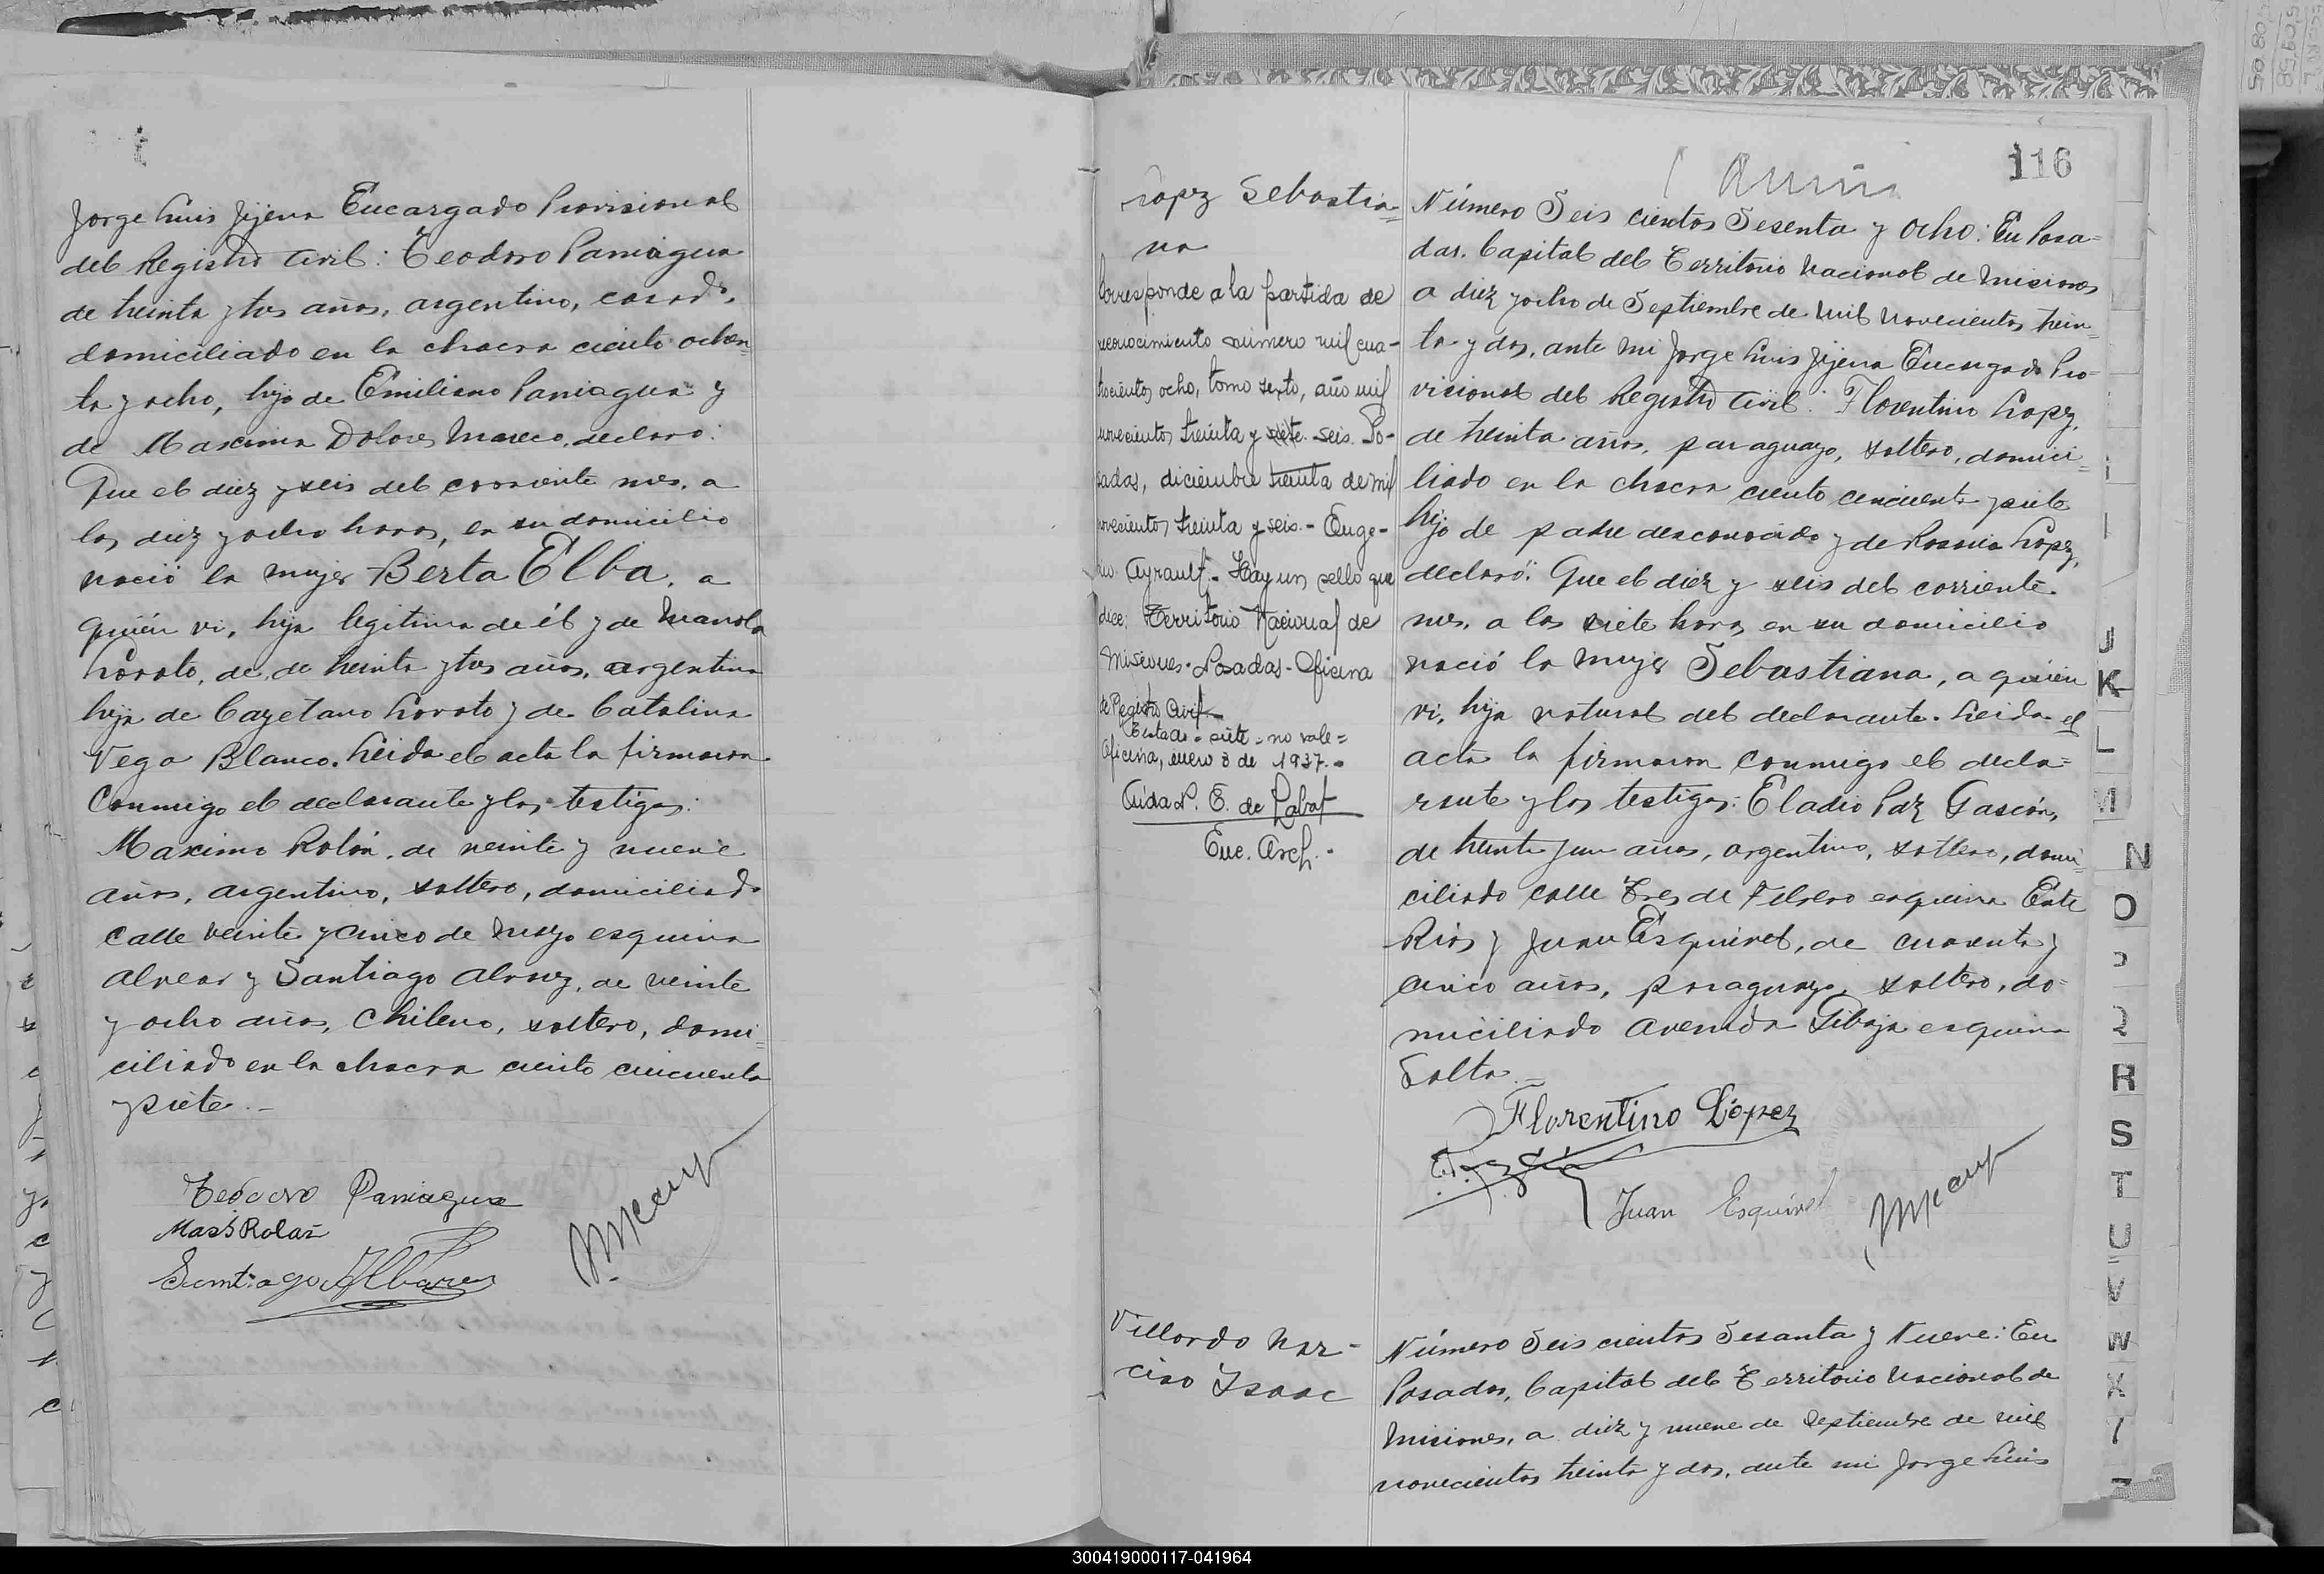 Jorge Luis Jijena Encargado Provisional
del Registro Civil: Teodoro Paniagua
de treinta y tres años, argentino, casado,
domiciliado en la chacra ciento ochen=
ta y ocho, hijo de Emiliano Paniagua y
de Maxima Dolores Mareco, declaró:
Que el diez y seis del corriente mes, a
las diez y ocho horas, en su domicilio
nació la mujer Berta Elba, a
quién vi, hija legitima de él y de Manola
Lovato, de, de treinta y tres años, argentina
hija de Cayetano Lovato y de Catalina
Vega Blanco. Leida el acta la firmaron
conmigo el declarante y los testigos:
Maximo Rolón, de veinte y nueve
años, argentino, soltero, domiciliado
calle veinte y cinco de Mayo esquina
Alvear y Santiago Alvarez, de veinte
y ocho años, Chileno, soltero, domi=
ciliado en la chacra ciento cincuenta
y siete.-
Teodoro Paniagua
Max. Rolan
Santiago Albarez
116
Lopez Sebastia=
na
Corresponde a la partida de
reconocimiento número mil cua-
trocientos ocho, tomo sexto, año mil
novecientos treinta y siete. seis. Po-
sadas, diciembre treinta de mil
novecientos treinta y seis.- Euge-
nio Ayrault.- Hay un sello que
dice: Territorio Nacional de
Misiones-Posadas-Oficina
de Registro Civil
Testado-siete-no vale=
Oficina, enero 8 de 1937.-
de Labat
Enc. Arch.-
Número Seis cientos Sesenta y Ocho: En Posa=
das, Capital del Territorio Nacional de Misiones
a diez y ocho de Septiembre de mil novecientos trein=
ta y dos, ante mi Jorge Luis Jijena Encargado Pro=
visional del Registro Civil: Florentino Lopez,
de treinta años, paraguayo, soltero, domici=
liado en la chacra ciento cincuenta y siete
hijo de padre desconocido y de Rosario Lopez,
declaró: Que el diez y seis del corriente
mes, a las siete horas, en su domicilio
nació la mujer Sebastiana, a quién
vi, hija natural del declarante. Leida el
acta la firmaron conmigo el decla=
rante y los testigos: Eladio Paz Gascón,
de treinta y un años, argentino, soltero, domi=
ciliado calle Tres de Febrero esquina Entre
Rios y Juan Esquivel, de cuarenta y
cinco años, paraguayo, soltero, do=
miciliado Avenida Tibaja esquina
Salta.-
Florentino López
Juan Esquivel
Villordo Nar-
ciso Isaac
Número Seis cientos Sesanta y Nueve: En
Posadas, Capital del Territorio Nacional de
Misiones, a diez y nueve de Septiembre de mil
novecientos treinta y dos, ante mi Jorge Luis
J
K
L
M
N
O
R
S
T
U
V
W
X
300419000117-041964